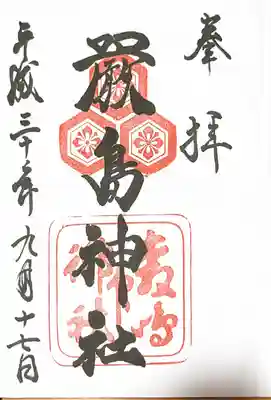 奉拝
厳島神社
嚴島神社
平成三十年九月十七日